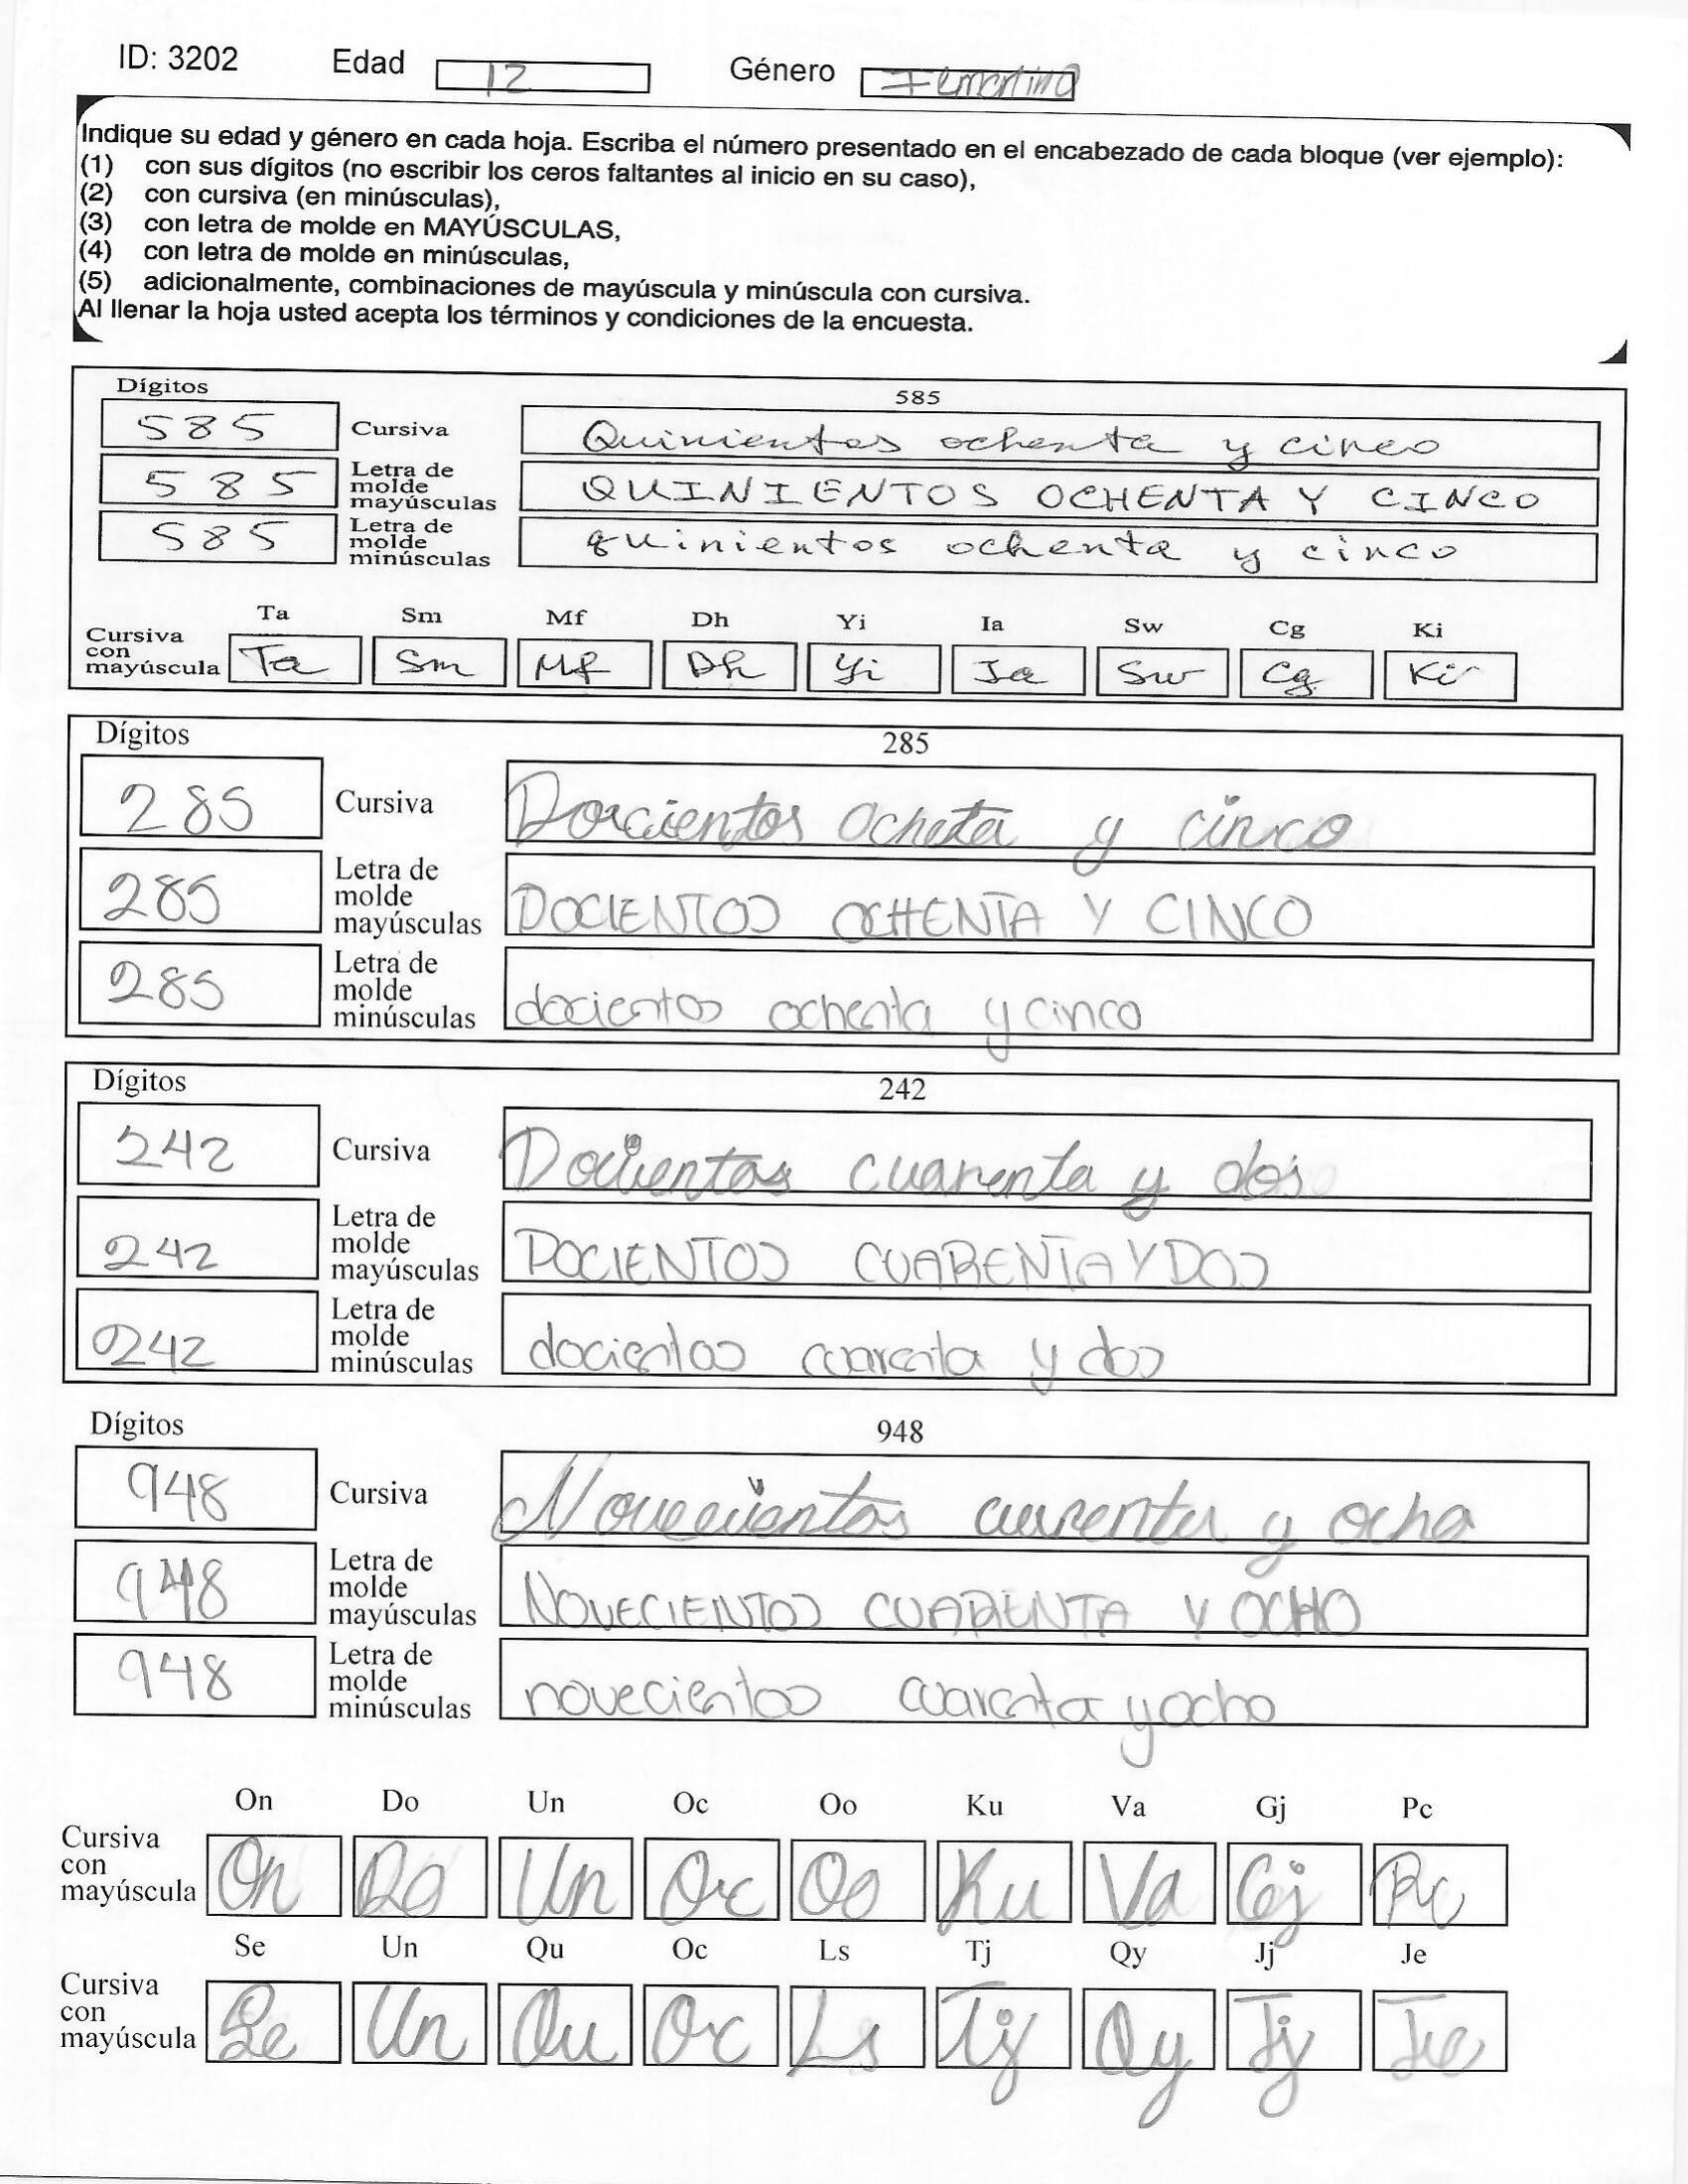 ID: 3202 Edad 12 Género Femenino
Indique su edad y género en cada hoja. Escriba el número presentado en el encabezado de cada bloque (ver ejemplo):
(1) con sus dígitos (no escribir los ceros faltantes al inicio en su caso),
(2) con cursiva (en minúsculas),
(3) con letra de molde en MAYÚSCULAS,
(4) con letra de molde en minúsculas,
(5) adicionalmente, combinaciones de mayúscula y minúscula con cursiva.
Al llenar la hoja usted acepta los términos y condiciones de la encuesta.
Dígitos 585
585 Cursiva Quinientos ochenta y cinco
585 Letra de molde mayúsculas QUINIENTOS OCHENTA Y CINCO
585 Letra de molde minúsculas quinientos ochenta y cinco
Ta Sm Mf Dh Yi Ia Sw Cg Ki
Cursiva con mayúscula Ta Sm Mf Dh Yi Ia Sw Cg Ki
Dígitos 285
285 Cursiva ocheta y cinco
285 Letra de molde mayúsculas DOCIENTOS OCHENTA Y CINCO
285 Letra de molde minúsculas docientos ochenta y cinco
Dígitos 242
242 Cursiva Docientos cuarenta y dos
242 Letra de molde mayúsculas DOCIENTOS CUARENTA Y DOS
242 Letra de molde minúsculas docientos cuarenta y dos
Dígitos 948
948 Cursiva Novecientos y ocho
948 Letra de molde mayúsculas NOVECIENTOS CUARENTA Y OCHO
948 Letra de molde minúsculas novecientos cuarenta y ocho
On Do Un Oc Oo Ku Va Gj Pc
Cursiva con mayúscula On Do Un Oc Oo Ku Va Gj Pc
Se Un Qu Oc Ls Tj Qy Jj Je
Cursiva con mayúscula Se Un Qu Oc Ls Tj Qy Jj Je